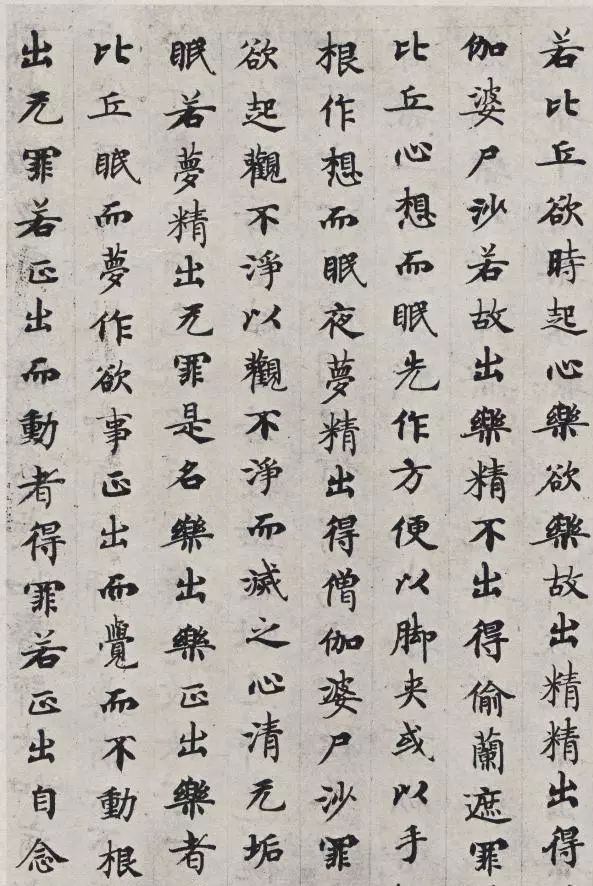 若比丘欲時起心樂欲樂故出精精出得
伽婆尸沙若故出樂精不出得偷蘭遮罪
比丘心想而眠先作方便以脚夹或以手
根作想而眠夜夢精出得僧伽婆尸沙罪
欲起觀不淨以觀不淨而滅之心清无垢
眠若夢精出无罪是名樂出樂正出樂者
比丘眠而夢作欲事正出而覺而不動根
出无罪若正出而動者得罪若正出自念